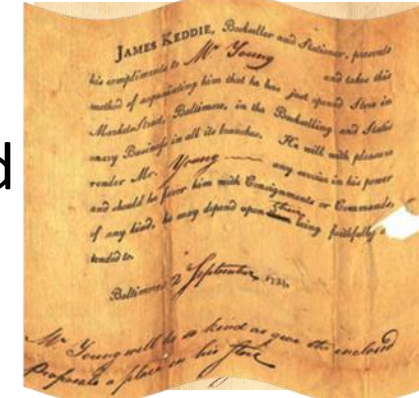 d
JAMES KEDDIE, Bookseller and Stationer, presents
his compliments to Mr. Young and takes this
method of acquainting him that he has just opened Store in
Market-Street, Baltimore, in the Bookselling and Statio-
nary Business in all its branches. He will with pleasure
render Mr. Young any service in his power
and should he favor him with Consignments or Commands,
of any kind, he may depend upon being faithfully
tended to.
Baltimore 2 September,
Mr Young will be so kind as give the inclosed
Proposals a place in his store